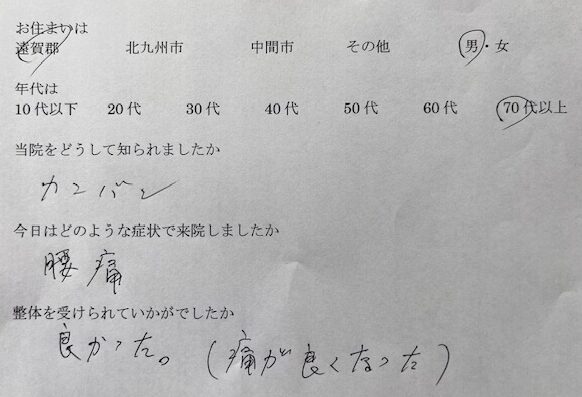 お住まいは
遠賀郡 北九州市 中間市 その他 男・女
年代は
10代以下 20代 30代 40代 50代 60代 70代以上
当院をどうして知られましたか
カンバン
今日はどのような症状で来院しましたか
腰痛
整体を受けられていかがでしたか
良かった。(痛が良くなった)